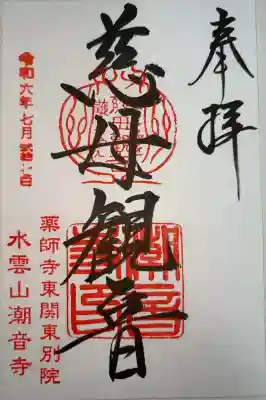 奉拝
慈母観音
令和六年七月弐拾七日
薬師寺東関東別院
水雲山潮音寺